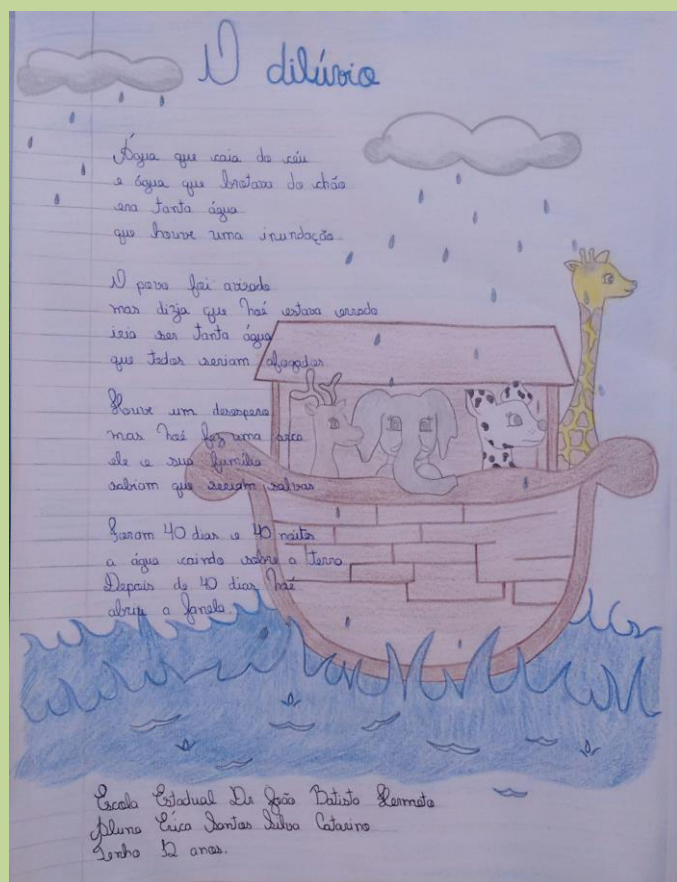 O dilúvio
Água que caia do céu
e água que brotava do chão
era tanta água
que houve uma inundação
O povo foi avisado
mas dizia que Noé estava errado
iria ser tanta água
que todos seriam afogados
Houve um desespero
mas Noé fez uma arca
ele e sua família
sabiam que seriam salvos
Foram 40 dias e 40 noites
a água caindo sobre a terra
Depois de 40 dias Noé
abriu a janela.
Escola Estadual Dr João Batista Hermeto
Aluna Erica Santos Silva Catarino
Tenho 12 anos.